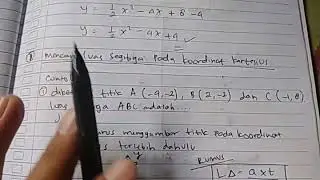 y = 1/2 x² - 4x + 8 - 4
y = 1/2 x² - 4x + 4 ✓
Mencari luas segitiga pada koordinat kartesius
Conto
① dike titik A (-4,-2), B (2,-2) dan C (-1,8)
luas segitiga ABC adalah....
arus menggambar titik pada koordinat
us terlebih dahulu
y RUMUS
L∆ = a x t